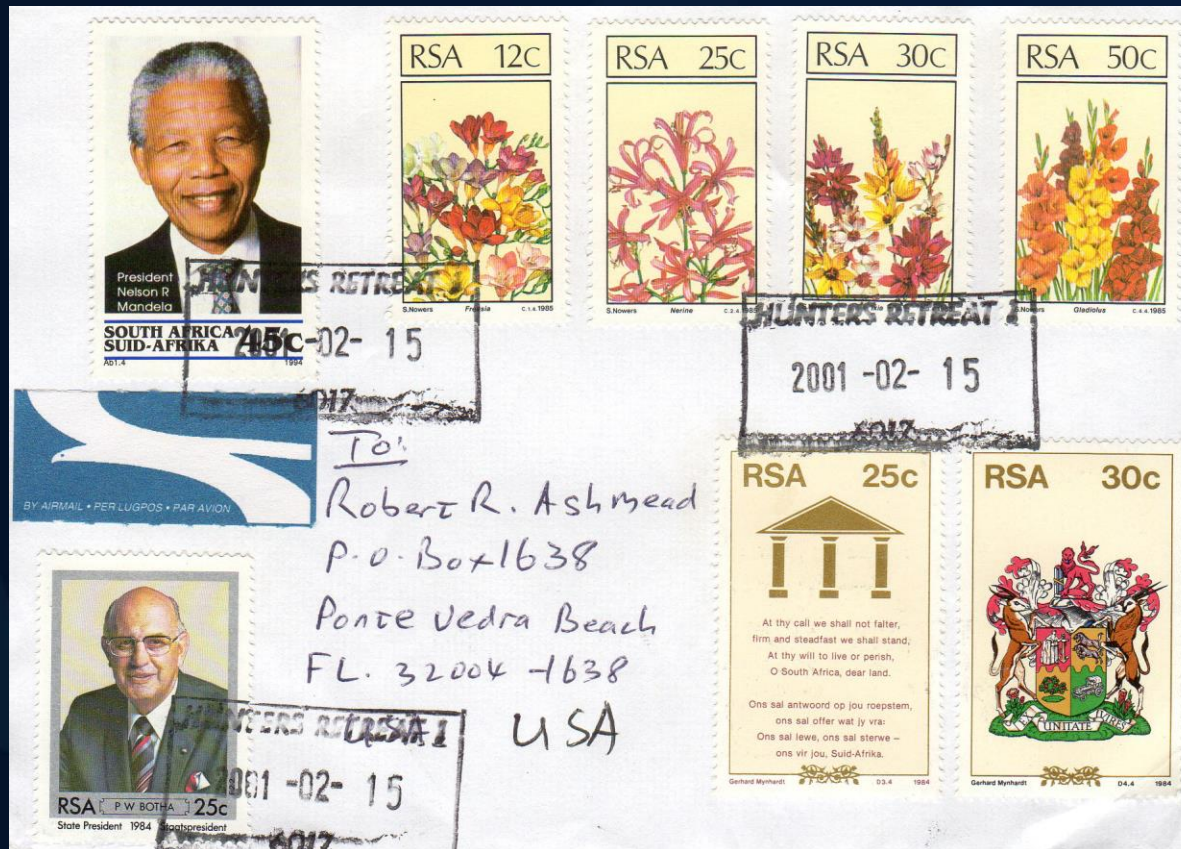 President
Nelson R
Mandela
SOUTH AFRICA
SUID-AFRIKA 45c
Ab1.4 1994
RSA 12c
S.Nowers Freesia C.1.4.1985
RSA 25c
S.Nowers Nerine C.3.4.1985
RSA 30c
1985
RSA 50c
S.Nowers Gladiolus C.4.4.1985
HUNTERS RETREAT
2001-02-15
6017
HUNTERS RETREAT 1
2001-02-15
6017
BY AIRMAIL • PER LUGPOS • PAR AVION
To:
Robert R. Ashmead
P.O. Box 1638
Ponte Vedra Beach
FL. 32004-1638
USA
RSA 25c
At thy call we shall not falter,
firm and steadfast we shall stand,
At thy will to live or perish,
O South Africa, dear land.
Ons sal antwoord op jou roepstem,
ons sal offer wat jy vra:
Ons sal lewe, ons sal sterwe –
ons vir jou, Suid-Afrika.
Gerhard Mynhardt D3.4 1984
RSA 30c
EX UNITATE VIRES
Gerhard Mynhardt D4.4 1984
RSA P W BOTHA 25c
State President 1984 Staatspresident
HUNTERS RETREAT 1
2001-02-15
6017